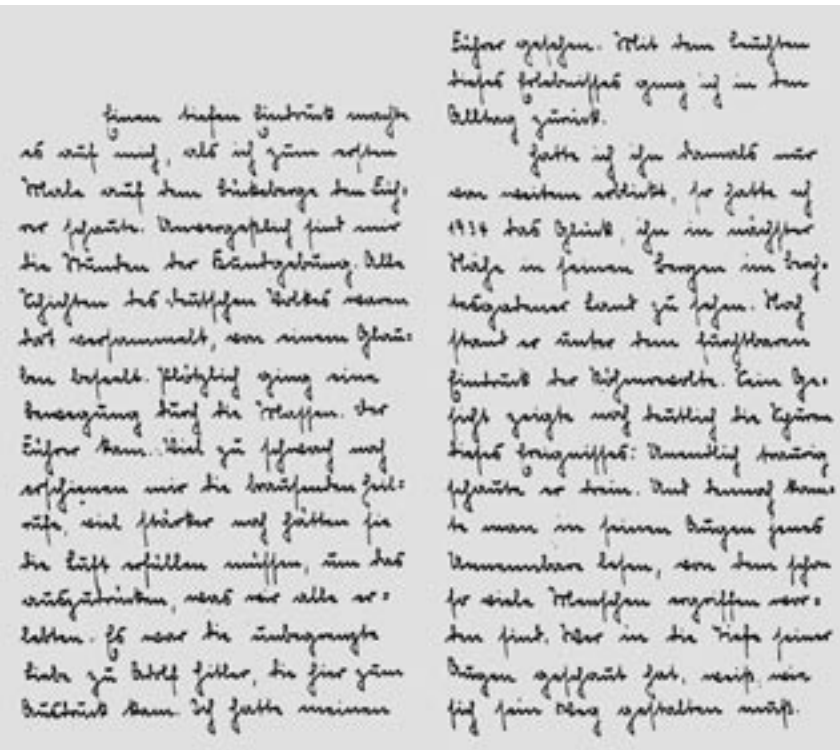 Einen tiefen Eindruck machte
es auf mich, als ich zum ersten
Male auf dem Bückeberge den Füh-
rer schaute. Unvergeßlich sind mir
die Stunden der Kundgebung. Alle
Schichten des deutschen Volkes waren
dort versammelt, von einem Glau-
ben beseelt. Plötzlich ging eine
Bewegung durch die Massen. Der
Führer kam. Viel zu schwach noch
erschienen mir die brausenden Heil-
rufe, viel stärker noch hätten sie
die Luft erfüllen müssen, um das
auszudrücken, was wir alle er-
lebten. Es war die unbegrenzte
Liebe zu Adolf Hitler, die hier zum
Ausdruck kam. Ich hatte meinen
Führer gesehen. Mit dem Leuchten
dieses Erlebnisses ging ich in den
Alltag zurück.
Hatte ich ihn damals nur
von weitem erblickt, so hatte ich
1934 das Glück, ihn in nächster
Nähe in seinen Bergen im Berch-
tesgadener Land zu sehen. Noch
stand er unter dem furchtbaren
Eindruck der Röhmrevolte. Sein Ge-
sicht zeigte noch deutlich die Spuren
dieses Ereignisses: Unendlich traurig
schaute er drein. Und dennoch konn-
te man in seinen Augen jenes
Unnennbare lesen, von dem schon
so viele Menschen ergriffen wor-
den sind. Wer in die Tiefe seiner
Augen geschaut hat, weiß, wie
sich sein Weg gestalten muß.